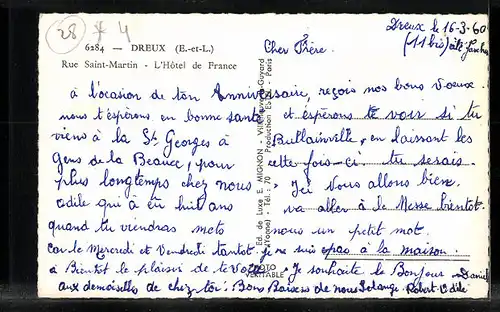 28 * 4
Dreux le 16-3-60
(11 bis) cité
6284 — DREUX (E.-et-L.)
Rue Saint-Martin - L'Hôtel de France
Cher Père.
à l'occasion de ton Anniversaire, reçois nos bons Voeux.
nous t'espérons en bonne santé et espérons te voir si tu
viens à la St Georges à Bullainville, en laissant les
Gens de la Beauce, pour cette fois-ci. tu serais
plus longtemps chez nous. Ici Vous allons bien.
Odile qui à eu huit ans va aller à la Messe bientôt.
quand tu viendras mets nous un petit mot.
Car le Mercredi et Vendredi tantôt je ne suis pas à la maison.
à Bientôt le plaisir de te Voir. Je souhaite le Bonjour
aux demoiselles de chez toi. Bons Baisers de nous Solange Robert Odile
Daniel
Ed. de Luxe E. MIGNON - Villeneuve-Guyard
(Yonne) - Tél. : 70 Production - Paris
PHOTO
VÉRITABLE